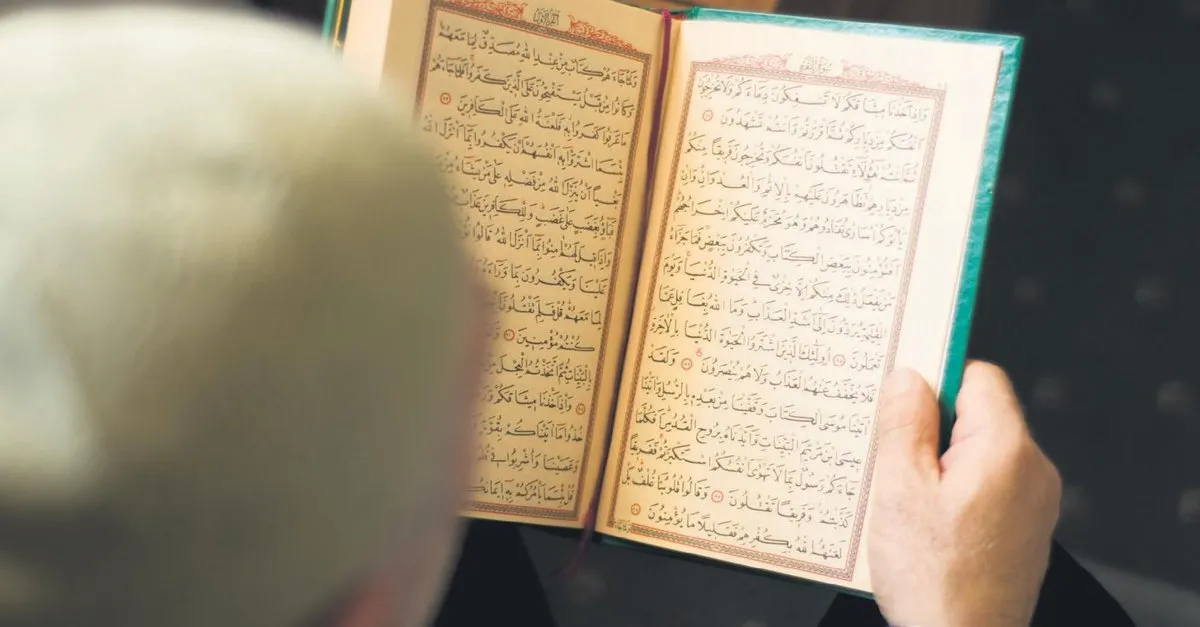 سورة البقرة
وَاِذْ اَخَذْنَا مِيثَاقَكُمْ لَا تَسْفِكُونَ دِمَاءَكُمْ وَلَا تُخْرِجُونَ
اَنْفُسَكُمْ مِنْ دِيَارِكُمْ ثُمَّ اَقْرَرْتُمْ وَاَنْتُمْ تَشْهَدُونَ
ثُمَّ اَنْتُمْ هٰؤُلَاءِ تَقْتُلُونَ اَنْفُسَكُمْ وَتُخْرِجُونَ فَرِيقًا مِنْكُمْ
مِنْ دِيَارِهِمْ تَظَاهَرُونَ عَلَيْهِمْ بِالْاِثْمِ وَالْعُدْوَانِ وَاِنْ
يَأْتُوكُمْ اُسَارٰى تُفَادُوهُمْ وَهُوَ مُحَرَّمٌ عَلَيْكُمْ اِخْرَاجُهُمْ
اَفَتُؤْمِنُونَ بِبَعْضِ الْكِتَابِ وَتَكْفُرُونَ بِبَعْضٍ فَمَا جَزَاءُ
مَنْ يَفْعَلُ ذٰلِكَ مِنْكُمْ اِلَّا خِزْيٌ فِي الْحَيٰوةِ الدُّنْيَا وَيَوْمَ
الْقِيٰمَةِ يُرَدُّونَ اِلٰى اَشَدِّ الْعَذَابِ وَمَا اللّٰهُ بِغَافِلٍ عَمَّا
تَعْمَلُونَ اُولٰئِكَ الَّذِينَ اشْتَرَوُا الْحَيٰوةَ الدُّنْيَا بِالْاٰخِرَةِ
فَلَا يُخَفَّفُ عَنْهُمُ الْعَذَابُ وَلَا هُمْ يُنْصَرُونَ وَلَقَدْ
اٰتَيْنَا مُوسَى الْكِتَابَ وَقَفَّيْنَا مِنْ بَعْدِهِ بِالرُّسُلِ وَاٰتَيْنَا
عِيسَى ابْنَ مَرْيَمَ الْبَيِّنَاتِ وَاَيَّدْنَاهُ بِرُوحِ الْقُدُسِ اَفَكُلَّمَا
جَاءَكُمْ رَسُولٌ بِمَا لَا تَهْوٰى اَنْفُسُكُمُ اسْتَكْبَرْتُمْ فَفَرِيقًا
كَذَّبْتُمْ وَفَرِيقًا تَقْتُلُونَ وَقَالُوا قُلُوبُنَا غُلْفٌ بَلْ
لَعَنَهُمُ اللّٰهُ بِكُفْرِهِمْ فَقَلِيلًا مَا يُؤْمِنُونَ
وَلَمَّا جَاءَهُمْ كِتَابٌ مِنْ عِنْدِ اللّٰهِ مُصَدِّقٌ لِمَا مَعَهُمْ
وَكَانُوا مِنْ قَبْلُ يَسْتَفْتِحُونَ عَلَى الَّذِينَ كَفَرُوا فَلَمَّا جَاءَهُمْ
مَا عَرَفُوا كَفَرُوا بِهِ فَلَعْنَةُ اللّٰهِ عَلَى الْكَافِرِينَ
بِئْسَمَا اشْتَرَوْا بِهِ اَنْفُسَهُمْ اَنْ يَكْفُرُوا بِمَا اَنْزَلَ اللّٰهُ
بَغْيًا اَنْ يُنَزِّلَ اللّٰهُ مِنْ فَضْلِهِ عَلٰى مَنْ يَشَاءُ مِنْ
فَبَاؤُ بِغَضَبٍ عَلٰى غَضَبٍ وَلِلْكَافِرِينَ عَذَابٌ
وَاِذَا قِيلَ لَهُمْ اٰمِنُوا بِمَا اَنْزَلَ اللّٰهُ قَالُوا
عَلَيْنَا وَيَكْفُرُونَ بِمَا وَرَاءَهُ
لِمَا مَعَهُمْ قُلْ فَلِمَ تَقْتُلُونَ
كُنْتُمْ مُؤْمِنِينَ
بِالْبَيِّنَاتِ ثُمَّ اتَّخَذْتُمُ الْعِجْلَ مِنْ
وَاِذْ اَخَذْنَا مِيثَاقَكُمْ وَرَ
خُذُوا مَا اٰتَيْنَاكُمْ بِقُوَّةٍ
وَعَصَيْنَا وَاُشْرِبُوا فِي
قُلْ بِئْسَمَا يَأْمُرُكُمْ بِهِ اِيمَانُكُمْ